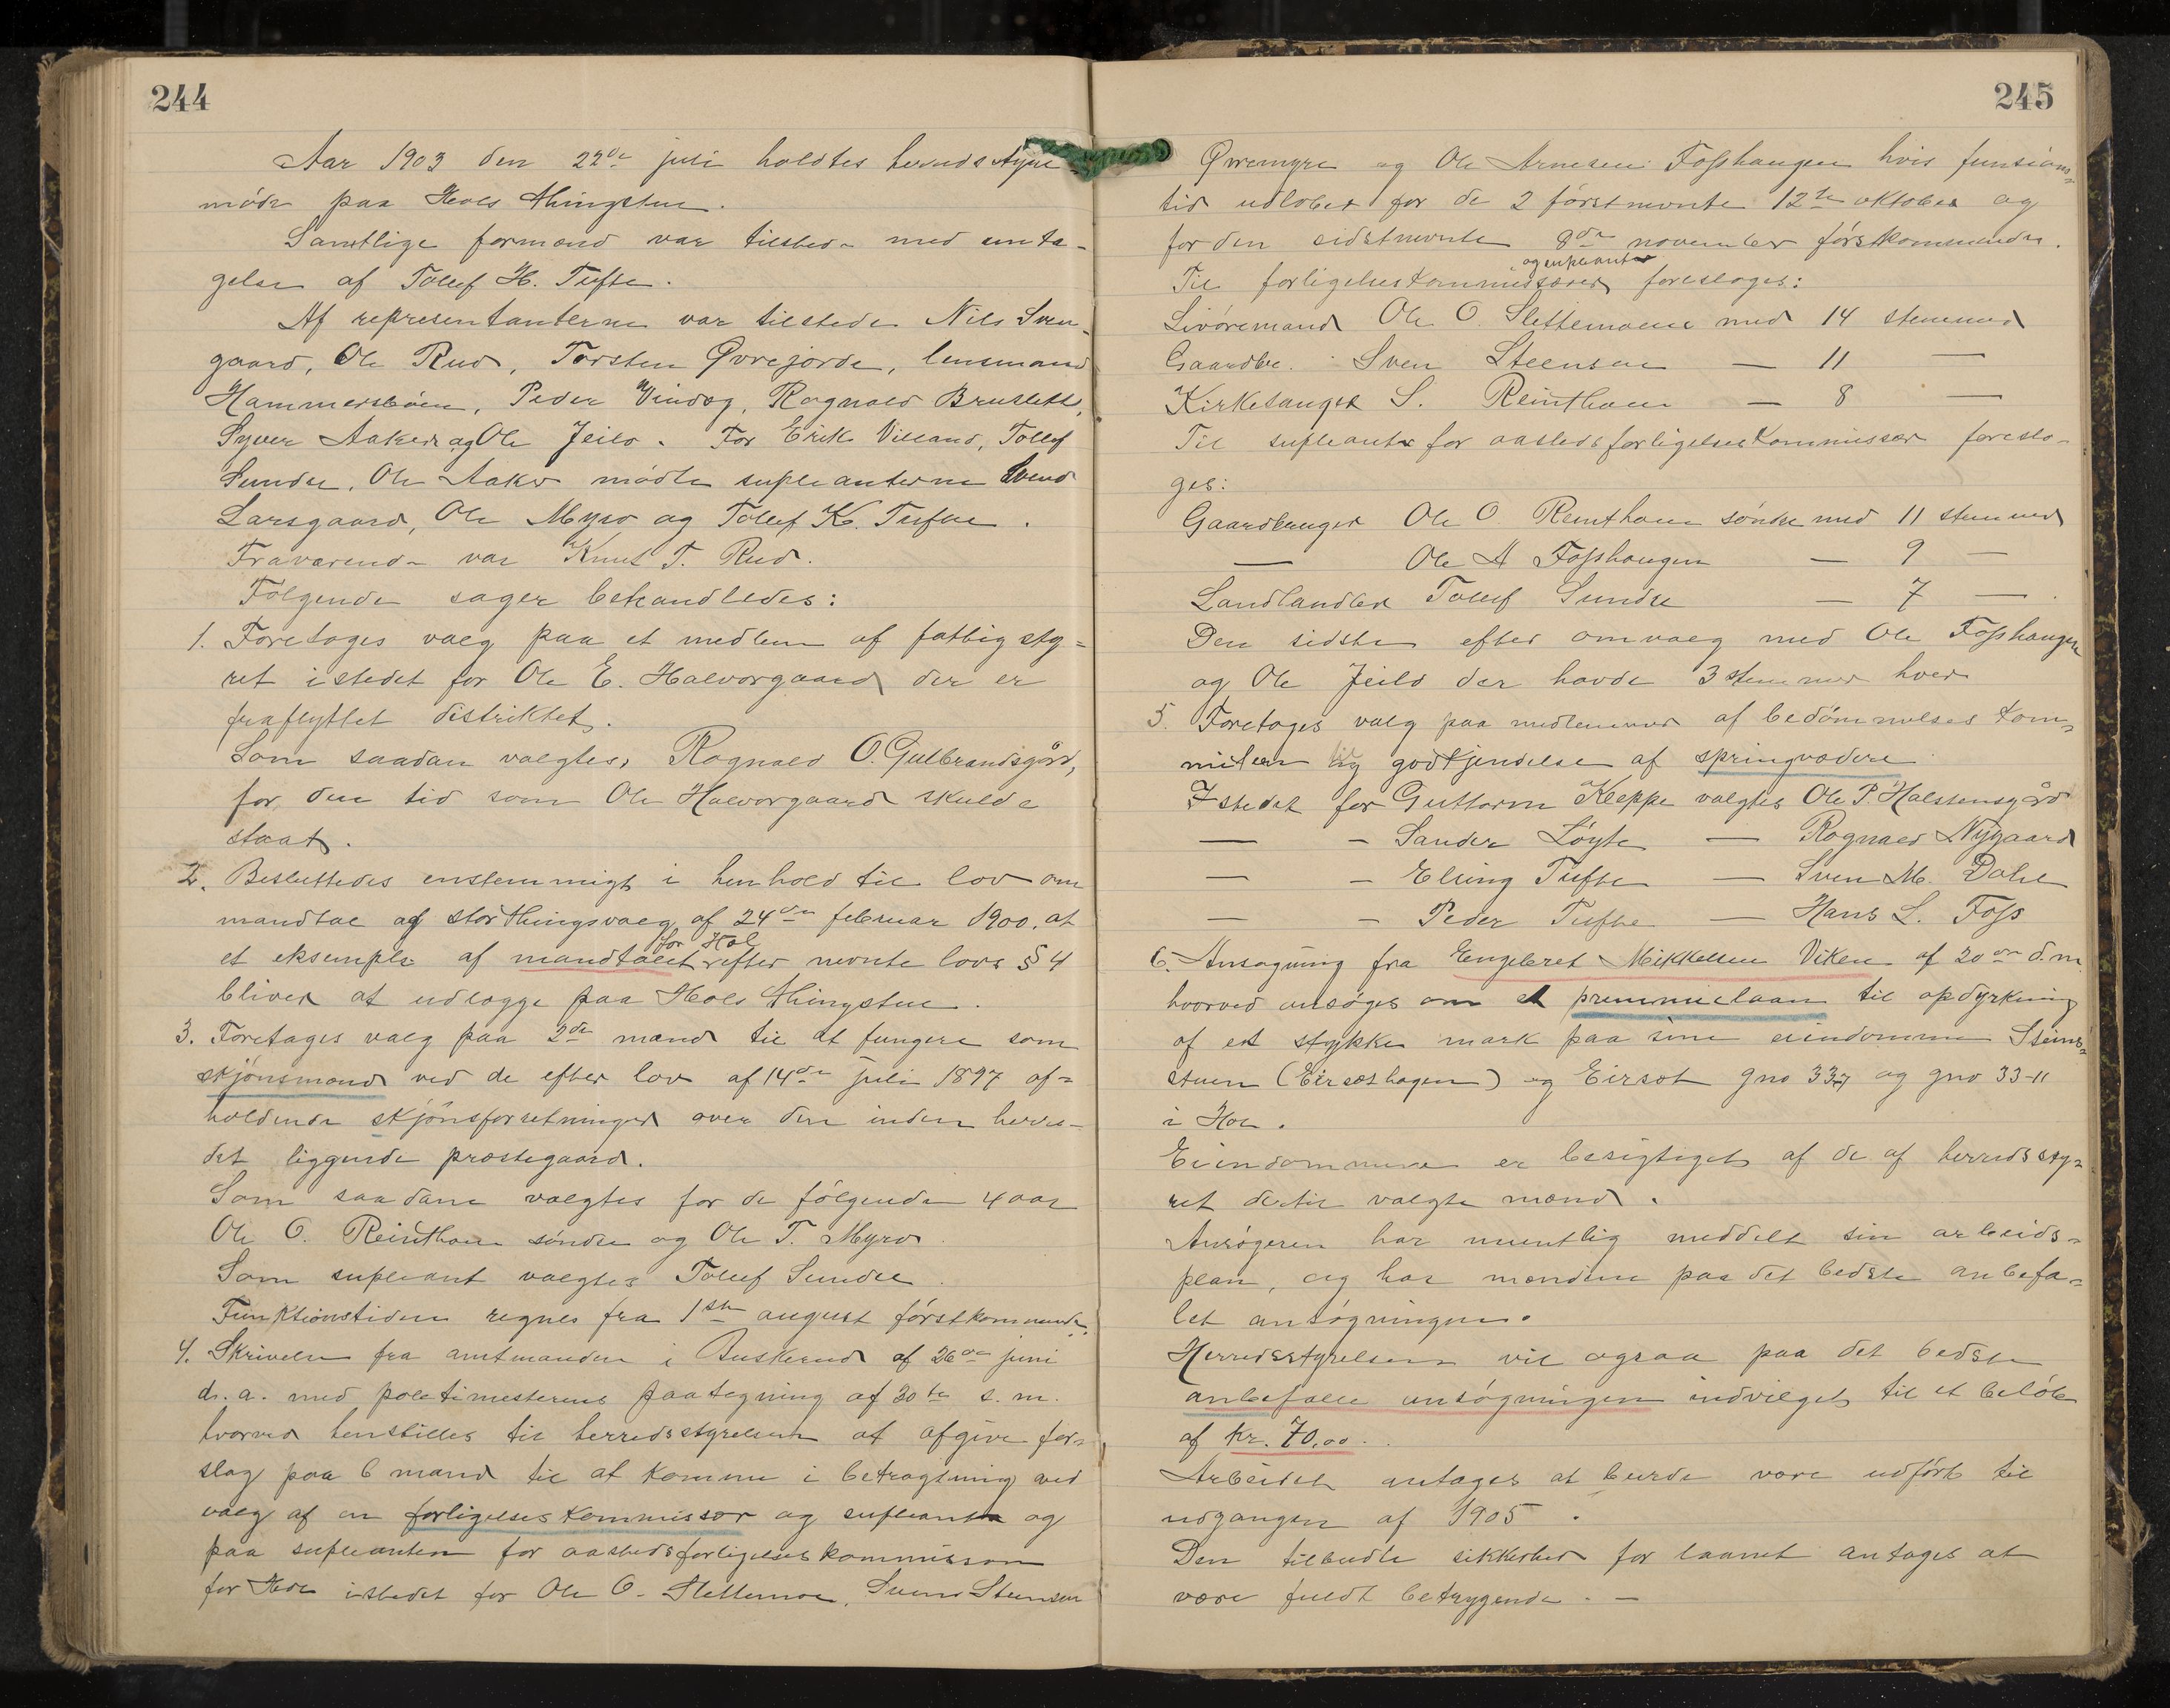 244
Aar 1903 den 22de juli holdtes herredsstyre-
møde paa Hols thingstue.
Samtlige formænd var tilstede med unta-
gelse af Tollef H. Tufte.
Af representanterne var tilstede Nils Sven-
gaard, Ole Rud, Torsten Øvrejorde, lensmand
Hammersbøen, Peder Vindeg, Ragnald Bruslett,
Syver Aaker og Ole Jeilo. For Erik Villand, Tollef
Sundre, Ole Aaker mødte supleanterne Svend
Larsgaard, Ole Myro og Tollef K. Tufte.
Fraværende var Knut T. Rud.
Følgende sager behandledes:
1. Foretoges valg paa et medlem af fattigsty-
ret istedet for Ole E. Halvorgaard der er
fraflyttet distriktet.
Som saadan valgtes, Ragnald O. Gulbrandsgård,
for den tid som Ole Halvorgaard skulde
staat.
2. Besluttedes enstemmigt i henhold til lov om
mandtal og storthingsvalg af 24de februar 1900, at
et eksemplar af mandtallet for Hol efter nævnte lovs § 4
bliver at udlægge paa Hols thingstue.
3. Foretages valg paa 2de mænd til at fungere som
skjønsmænd ved de efter lov af 14de juli 1897 af-
holdende skjønsforretninger over den inden herre-
det liggende præstegaard.
Som saadane valgtes for de følgende 4 aar
Ole O. Reinthon søndre og Ole T. Myro.
Som supleant valgtes Tollef Sundre.
Funktionstiden regnes fra 1ste august førstkommende.
4. Skrivelse fra amtmanden i Buskerud af 26de juni
d. a. med politimesterens paategning af 30te s. m.
hvorved henstilles til herredsstyrelsen at afgive for-
slag paa 6 mand til at komme i betragtning ved
valg af en forligelseskommissær og supleanter og
paa supleanten for aastedsforligelseskommissen
for Hol istedet for Ole O. Slettemoe, Svend Steensen
245
Øvremyre og Ole Arnesen Fosshaugen hvis funsions-
tid udløber for de 2 førstnevnte 12te oktober og
for den sidstnevnte 8de november førstkommende.
Til forligelseskommissærer og supleanter foresloges:
Livøremand Ole O. Slettemoene med 14 stemmer
Gaardbr. Sven Steensen — 11 —
Kirkesanger S. Reinthon — 8 —
Til supleanter for aastedsforligelseskommissær foreslo-
ges:
Gaardbruger Ole O. Reinthon søndre med 11 stemmer
— Ole A Fosshaugen — 9 —
Landhandler Tollef Sundre — 7 —
Den sidste efter omvalg med Ole Fosshaugen
og Ole Jeilo der havde 3 stemmer hver
5. Foretages valg paa medlemmer af bedømmelses kom-
miteen til godkjendelse af springvædere
I stedet for Guttorm Kleppe valgtes Ole P. Halstensgård
— - Sander Løyte — Ragnald Nygaard
— - Elling Tufte — Sven M. Dahl
— - Peder Tufte — Hans L. Foss
6. Ansøgning fra Engebret Mikkelsen Viken af 20de d.m.
hvorved ansøges om et premmielaan til opdyrkning
af et stykke mark paa sine eiendomme Steins-
stuen (Eirsethagen) og Eirset gno 33-7 og gno 33-11
i Hol.
Eiendommene er besigtiget af de af herredssty-
ret dertil valgte mænd.
Ansøgeren har muntlig meddelt sin arbeids-
plan, og har mændene paa det bedste anbefa-
let ansøgningen.
Herredsstyrelsen vil ogsaa paa det bedste
anbefalle ansøgningen indvilget til et beløb
af kr. 70,00.
Arbeidet antages at burde være udført til
udgangen af 1905.
Den tilbudte sikkerhed for laanet antages at
være fuldt betrygende. —